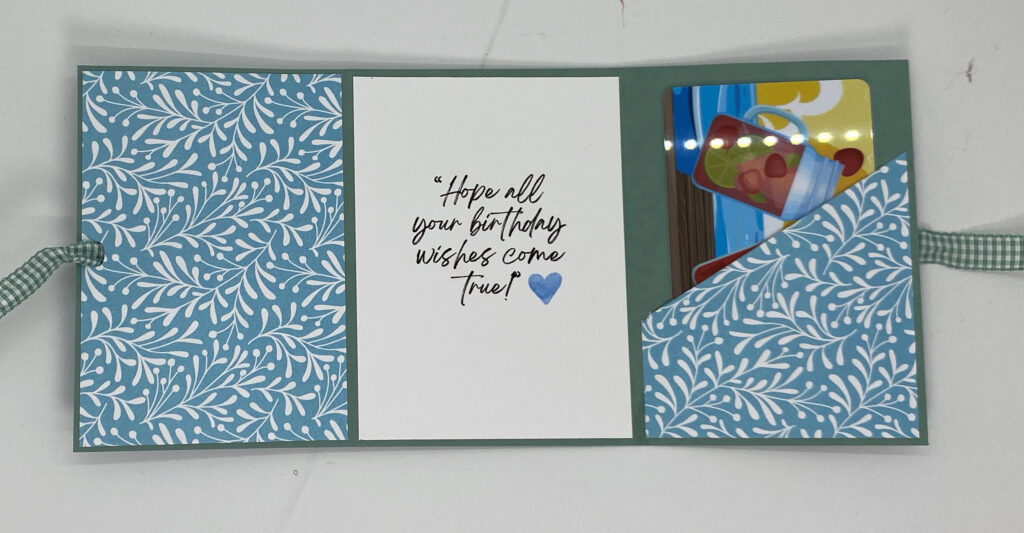 “Hope all
your birthday
wishes come
true!”